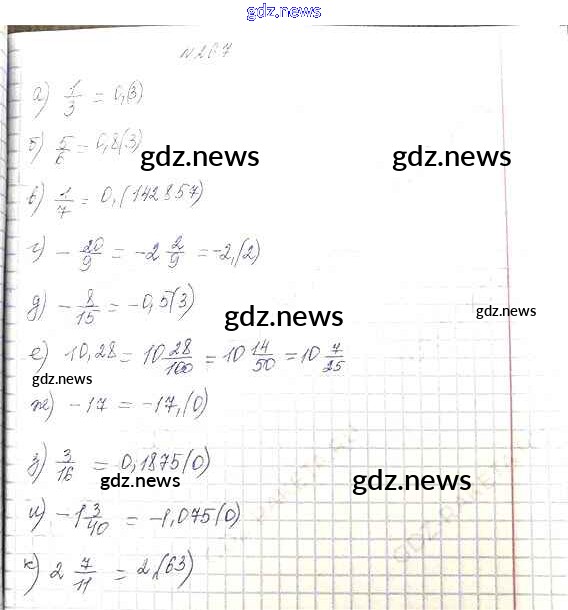 gdz.news
N 267
а) 1/3 = 0,(3)
б) 5/6 = 0,8(3)
gdz.news gdz.news
в) 1/7 = 0,(142857)
г) - 20/9 = -2 2/9 = -2,(2)
д) - 8/15 = -0,5(3)
gdz.news gdz.news
е) 10,28 = 10 28/100 = 10 14/50 = 10 7/25
gdz.news
ж) -17 = -17,(0)
з) 3/16 = 0,1875(0)
gdz.news gdz.news
и) -1 3/40 = -1,075(0)
к) 2 7/11 = 2,(63)